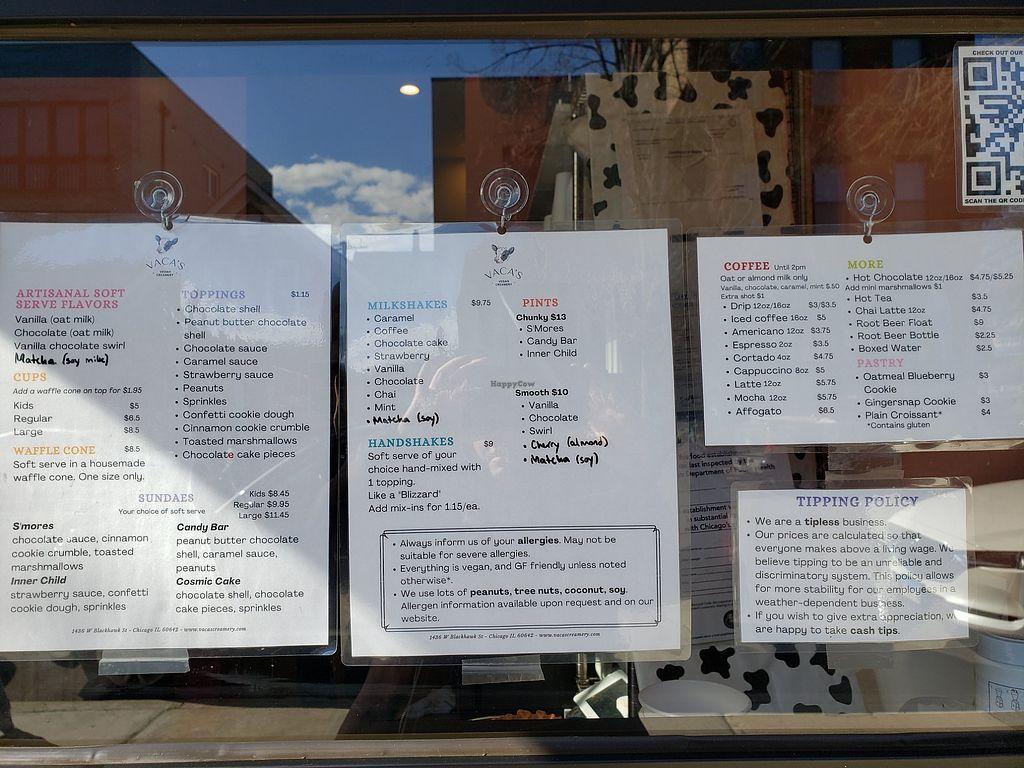 CHECK OUT OUR
SCAN THE QR CODE
VACA'S
VEGAN
CREAMERY
ARTISANAL SOFT
SERVE FLAVORS
Vanilla (oat milk)
Chocolate (oat milk)
Vanilla chocolate swirl
Matcha (soy milk)
CUPS
Add a waffle cone on top for $1.95
Kids $5
Regular $6.5
Large $8.5
WAFFLE CONE $8.5
Soft serve in a housemade
waffle cone. One size only.
TOPPINGS $1.15
• Chocolate shell
• Peanut butter chocolate
shell
• Chocolate sauce
• Caramel sauce
• Strawberry sauce
• Peanuts
• Sprinkles
• Confetti cookie dough
• Cinnamon cookie crumble
• Toasted marshmallows
• Chocolate cake pieces
SUNDAES
Your choice of soft serve
Kids $8.45
Regular $9.95
Large $11.45
S'mores
chocolate sauce, cinnamon
cookie crumble, toasted
marshmallows
Inner Child
strawberry sauce, confetti
cookie dough, sprinkles
Candy Bar
peanut butter chocolate
shell, caramel sauce,
peanuts
Cosmic Cake
chocolate shell, chocolate
cake pieces, sprinkles
1436 W Blackhawk St - Chicago IL 60642 - www.vacascreamery.com
VACA'S
VEGAN
CREAMERY
MILKSHAKES $9.75
• Caramel
• Coffee
• Chocolate cake
• Strawberry
• Vanilla
• Chocolate
• Chai
• Mint
• Matcha (soy)
HANDSHAKES $9
Soft serve of your
choice hand-mixed with
1 topping.
Like a 'Blizzard'
Add mix-ins for 1.15/ea.
PINTS
Chunky $13
• S'Mores
• Candy Bar
• Inner Child
HappyCow
Smooth $10
• Vanilla
• Chocolate
• Swirl
• Cherry (almond)
• Matcha (soy)
• Always inform us of your allergies. May not be
suitable for severe allergies.
• Everything is vegan, and GF friendly unless noted
otherwise*.
• We use lots of peanuts, tree nuts, coconut, soy.
Allergen information available upon request and on our
website.
1436 W Blackhawk St - Chicago IL 60642 - www.vacascreamery.com
COFFEE Until 2pm
Oat or almond milk only
Vanilla, chocolate, caramel, mint $.50
Extra shot $1
• Drip 12oz/16oz $3/$3.5
• Iced coffee 16oz $5
• Americano 12oz $3.75
• Espresso 2oz $3.5
• Cortado 4oz $4.75
• Cappuccino 8oz $5
• Latte 12oz $5.75
• Mocha 12oz $5.75
• Affogato $6.5
MORE
• Hot Chocolate 12oz/16oz $4.75/$5.25
Add mini marshmallows $1
• Hot Tea $3.5
• Chai Latte 12oz $4.75
• Root Beer Float $9
• Root Beer Bottle $2.25
• Boxed Water $2.5
PASTRY
• Oatmeal Blueberry $3
Cookie
• Gingersnap Cookie $3
• Plain Croissant* $4
*Contains gluten
TIPPING POLICY
• We are a tipless business.
• Our prices are calculated so that
everyone makes above a living wage. We
believe tipping to be an unreliable and
discriminatory system. This policy allows
for more stability for our employees in a
weather-dependent business.
• If you wish to give extra appreciation, we
are happy to take cash tips.